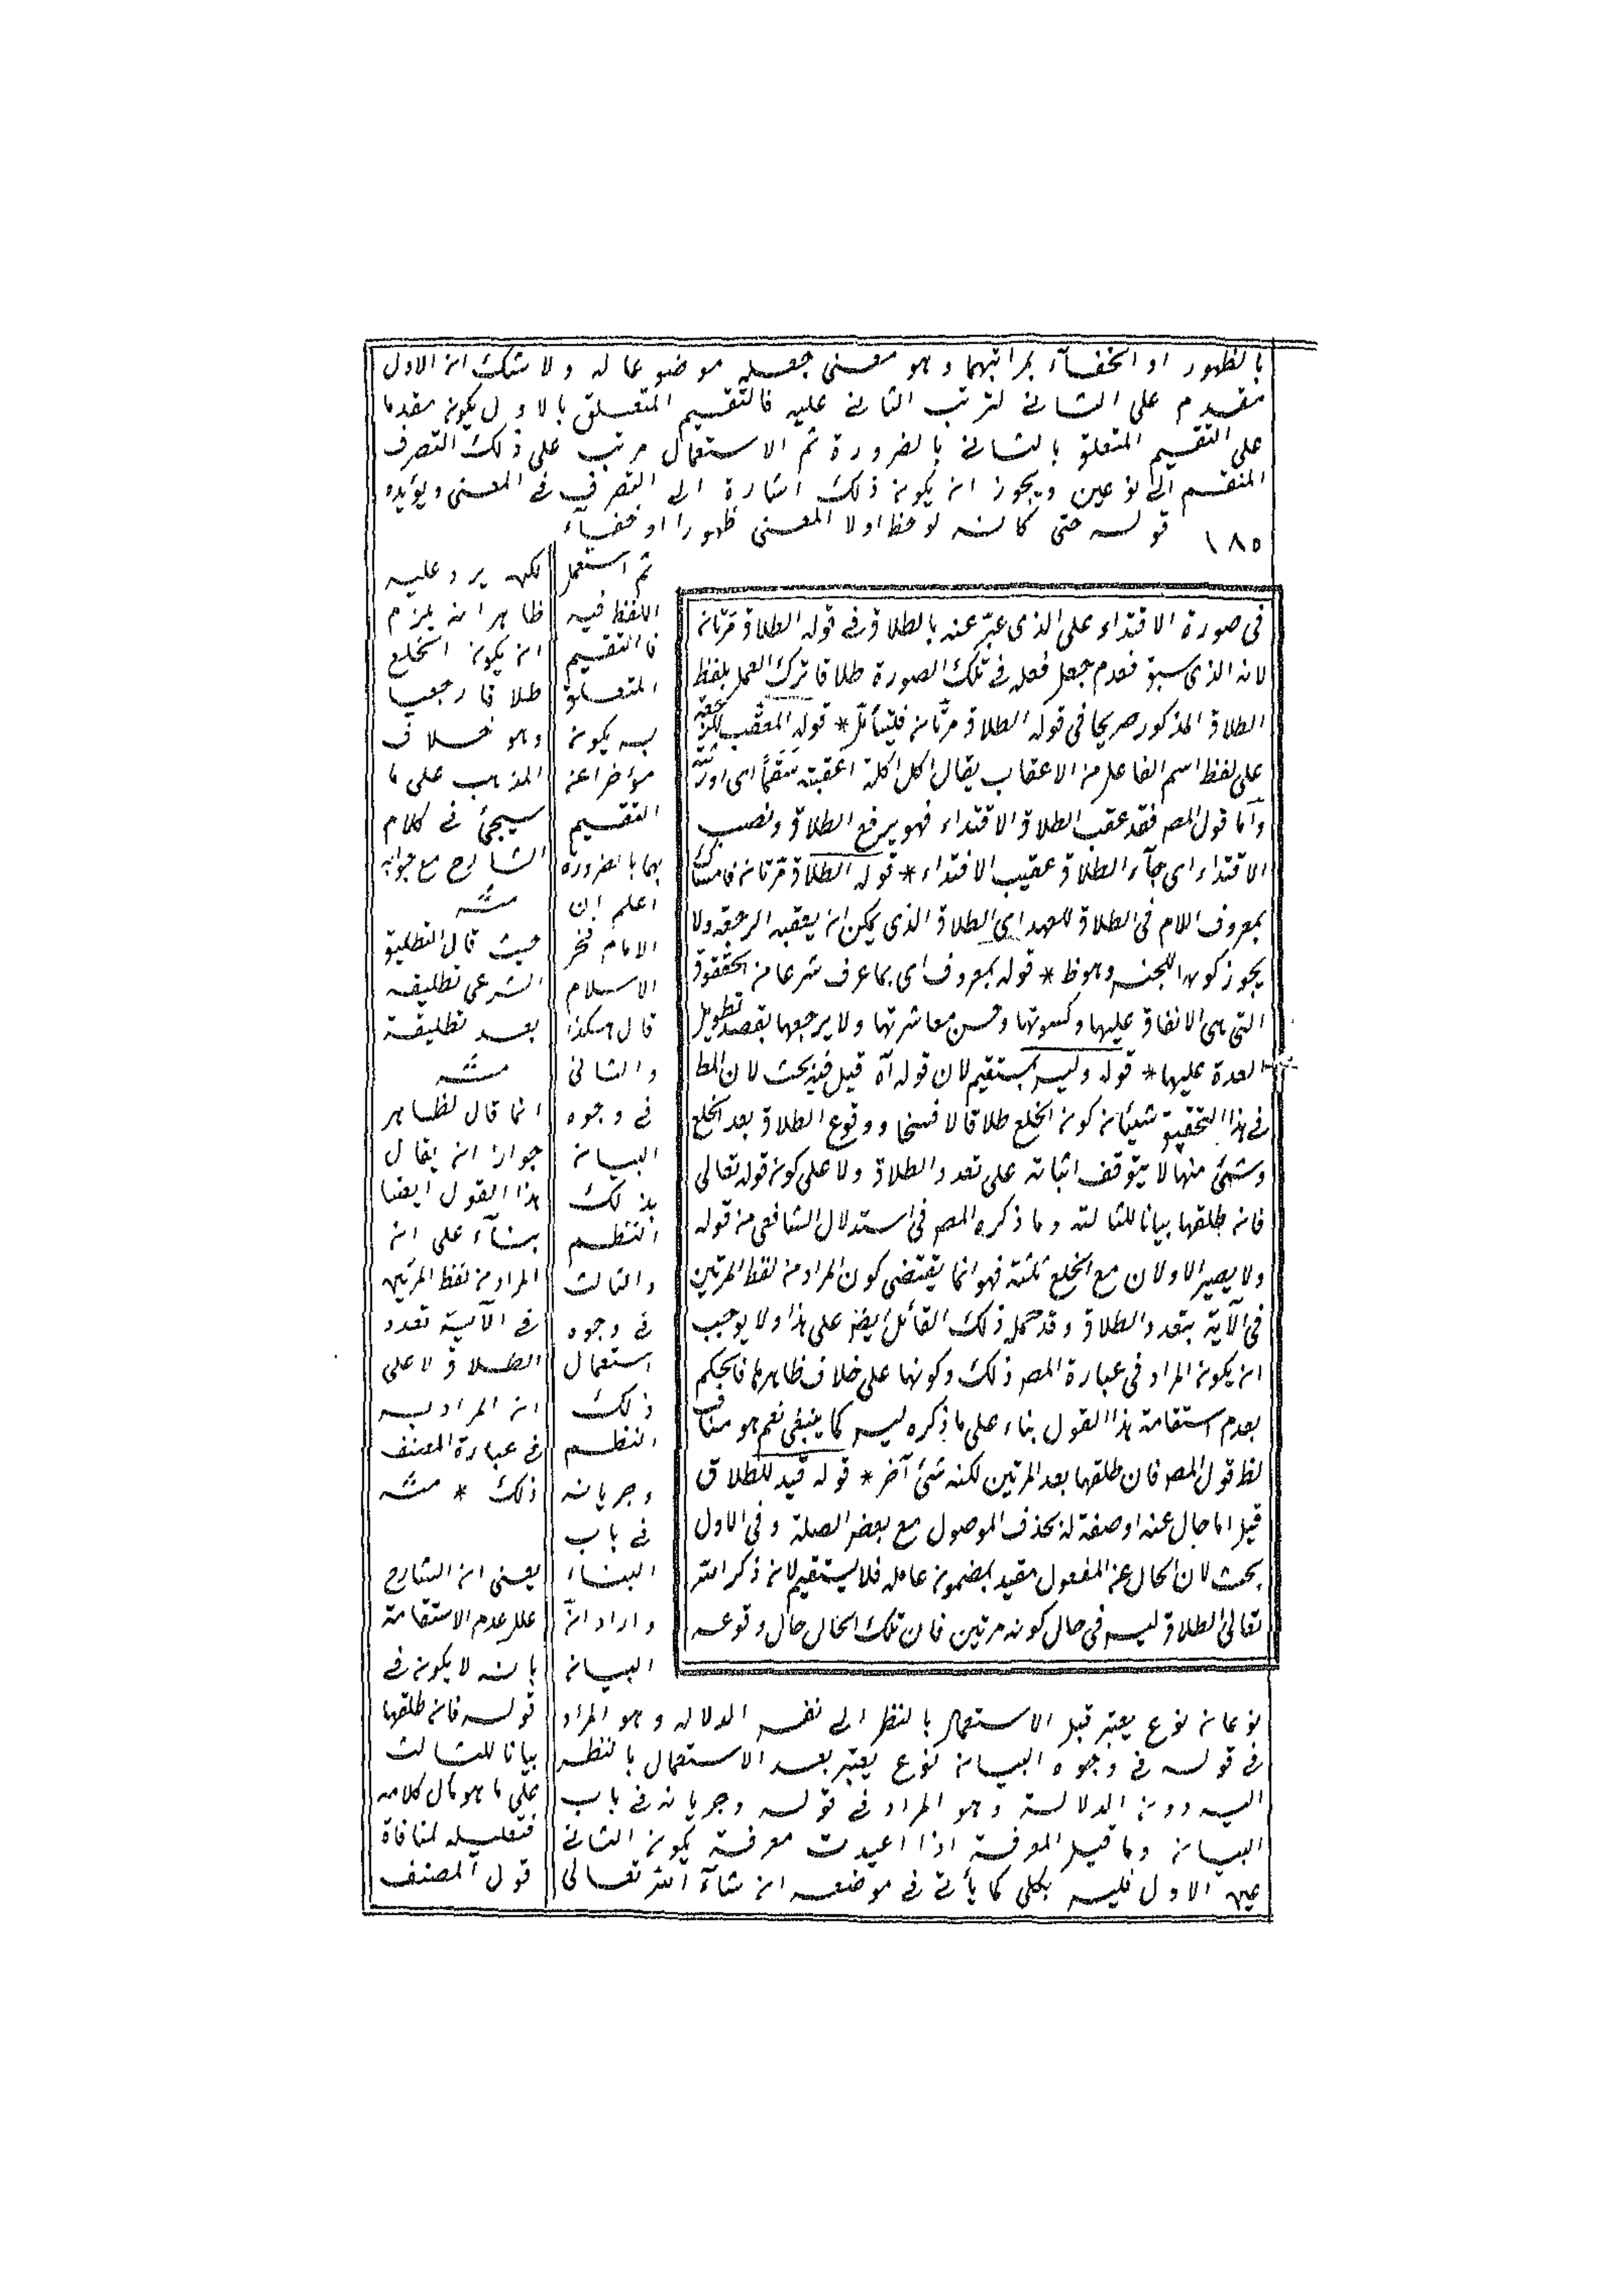 بالظهور او الخفآء بمراتبهما وهو معنى جعله موضوعا له ولا شك ان الاول
مقدم على الثانى لترتب الثانى عليه فالتقسيم المتعلق بالاول يكون مقدما
على التقسيم المتعلق بالثانى بالضرورة ثم الاستعمال مرتب على ذلك التصرف
المنقسم الى نوعين ويجوز ان يكون ذلك اشارة الى التصرف فى المعنى ويؤيده
١٨٥ قوله حتى كانه لوحظ اولا المعنى ظهورا او خفآء
ثم استعمل
اللفظ فيه
فالتقسيم
المتعلق
به يكون
مؤخرا عن
التقسيم
بهما بالضرورة
اعلم ان
الامام فخر
الاسلام
قال هكذا
والثانى
فى وجوه
البيان
بذلك
النظم
والثالث
فى وجوه
استعمال
ذلك
النظم
وجريانه
فى باب
البيان
واراد انّ
البيان
نوعان نوع يعتبر قبل الاستعمال بالنظر الى نفس الدلاله وهو المراد
فى قوله فى وجوه البيان نوع يعتبر بعد الاستعمال بالنظر
اليه دون الدلالة وهو المراد فى قوله وجريانه فى باب
البيان وما قيل المعرفة اذا اعيدت معرفة يكون الثانى
عين الاول فليس بكلى كما يأتى فى موضعه ان شآء الله تعالى
فى صورة الافتداء على الذى عبّر عنه بالطلاق فى قوله الطلاق مرّتان
لان الذى سبق فعدم جعل فعله فى تلك الصورة طلاقا ترك العمل بلفظ
الطلاق المذكور صريحا فى قوله الطلاق مرّتان فليتأمّل * قوله المعقّب للرجعة
على لفظ اسم الفاعل من الاعقاب يقال اكل اكلة اعقبته سَقَمًا اى اورثته
وأما قول المص فقد عقب الطلاق الافتداء فهو برفع الطلاق ونصب
الافتداء اى جآء الطلاق عقيب الافتداء * قوله الطلاق مرّتان فامساك
بمعروف اللام فى الطلاق للعهد اى الطلاق الذى يمكن ان يعقبه الرجعة ولا
يجوز كونه للجنس وهو ظ * قوله بمعروف اى بما عرف شرعا من الحقوق
التى هى الانفاق عليها وكسوتها وحسن معاشرتها ولا يرجعها بقصد تطويل
العدة عليها * قوله وليس بمستقيم لان قوله آه قيل فيه بحث لان المط
فى هذا التحقيق شيئان كون الخلع طلاقا لا فسخا ووقوع الطلاق بعد الخلع
وشئ منها لا يتوقف اثباته على تعدد الطلاق ولا على كون قوله تعالى
فان طلقها بيانا للثالثه وما ذكره المص فى استدلال الشافعى من قوله
ولا يصير الاولان مع الخلع ثلثة فهو انما يقتضى كون المراد من لفظ المرتين
فى الآية بتعدد الطلاق وقد حمل ذلك القائل ايضا على هذا ولا يوجب
ان يكون المراد فى عبارة المص ذلك وكونها على خلاف ظاهرها فالحكم
بعدم استقامة هذا القول بناء على ما ذكره ليس كما ينبغى نعم هو مناف
لظ قول المص فان طلقها بعد المرتين لكنه شئ آخر * قوله قيد للطلاق
قيل اما حال عنه او صفة له بحذف الموصول مع بعض الصلة وفى الاول
بحث لان الحال عن المفعول مقيد بمضمون عامله فلا يستقيم لان ذكر الله
تعالى الطلاق ليس فى حال كونه مرتين فان تلك الحال حال وقوعه
لكن يرد عليه
ظاهرا انه يلزم
ان يكون الخلع
طلاقا رجعيا
وهو خلاف
المذهب على ما
سيجئ فى كلام
الشارح مع جوابه
منه
حيث قال التطليق
الشرعى تطليقه
بعد تطليقة
منه
انما قال لظاهر
جواز ان يقال
هذا القول ايضا
بنآء على ان
المراد من لفظ المرتين
فى الآية تعدد
الطلاق لا على
ان المراد به
فى عبارة المصنف
ذلك * منه
يعنى ان الشارح
علل عدم الاستقامة
بانه لا يكون فى
قوله فان طلقها
بيانا للثالث
على ما هو مآل كلامه
فتعليله لمنافاة
قول المصنف